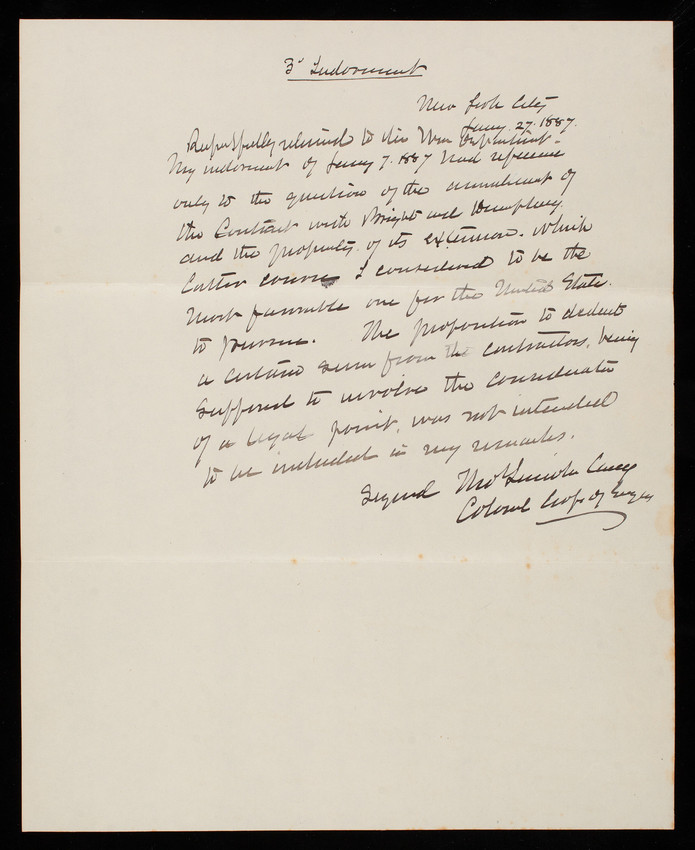 3d Indorsement
New York City
Jany. 27. 1887.
Respectfully returned to the War Department.
My indorsement of Jany 7. 1887 had reference
only to the question of the annulment of
the Contract with Wright and Humphrey
and the propriety of its extension. Which
latter course I considered to be the
most favorable one for the United States.
to pursue. The proposition to deduct
a certain sum from the contractors, being
supposed to involve the consideration
of a legal point, was not intended
to be included in my remarks.
Signed Thos Lincoln Casey
Colonel Corps of Engrs